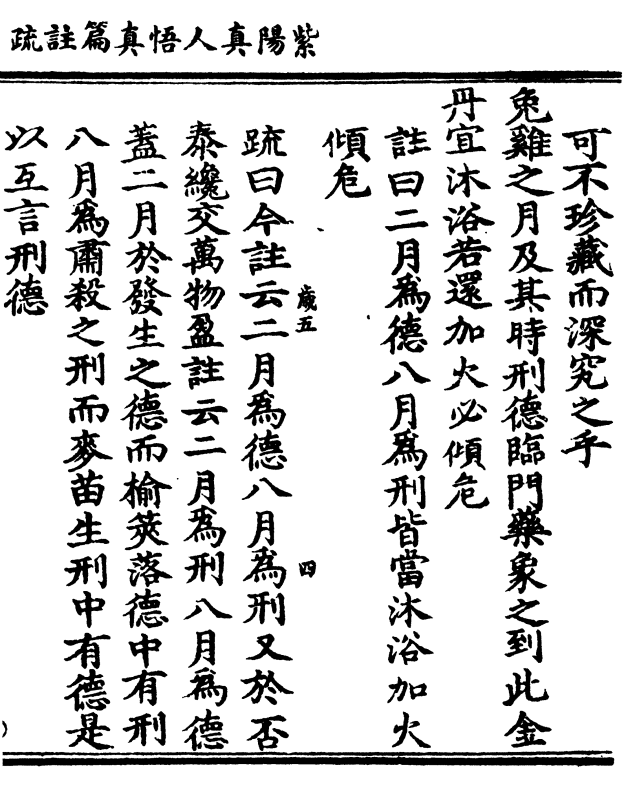 紫陽真人悟真篇註疏
可不珍藏而深究之乎
兔雞之月及其時刑德臨門藥象之到此金
丹宜沐浴若還加火必傾危
註曰二月爲德八月爲刑皆當沐浴加火
傾危
歲五
四
疏曰今註云二月爲德八月爲刑又於否
泰纔交萬物盈註云二月爲刑八月爲德
蓋二月於發生之德而榆莢落德中有刑
八月爲肅殺之刑而麥苗生刑中有德是
以互言刑德